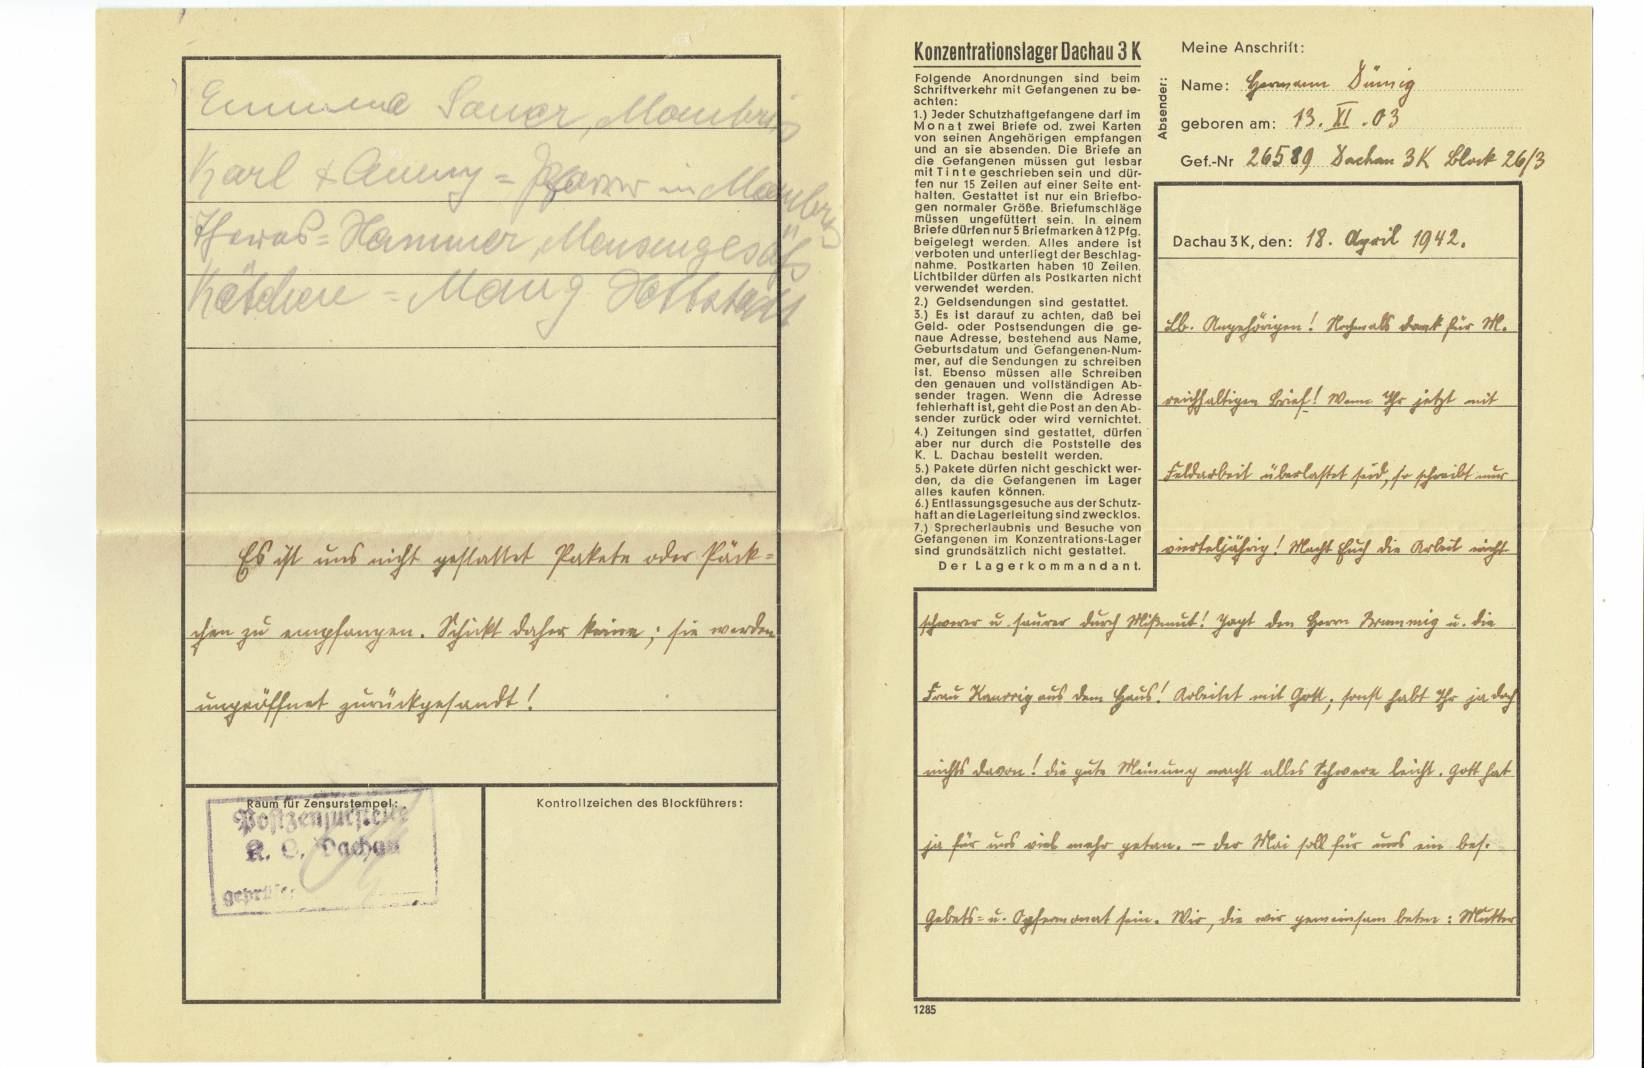 Emma Sauer, Mömbris
Karl & Anny = Pfarrer in Mömbris
Hammer, Mensengesäß
Kätchen = Hofstädt
Es ist uns nicht gestattet Pakete oder Päck=
chen zu empfangen. Schickt daher keine; sie werden
ungeöffnet zurückgesandt!
Raum für Zensurstempel:
Postzensurstelle
K. L. Dachau
geprüft:
Kontrollzeichen des Blockführers:
Konzentrationslager Dachau 3 K
Folgende Anordnungen sind beim
Schriftverkehr mit Gefangenen zu be-
achten:
1.) Jeder Schutzhaftgefangene darf im
Monat zwei Briefe od. zwei Karten
von seinen Angehörigen empfangen
und an sie absenden. Die Briefe an
die Gefangenen müssen gut lesbar
mit Tinte geschrieben sein und dür-
fen nur 15 Zeilen auf einer Seite ent-
halten. Gestattet ist nur ein Briefbo-
gen normaler Größe. Briefumschläge
müssen ungefüttert sein. In einem
Briefe dürfen nur 5 Briefmarken à 12 Pfg.
beigelegt werden. Alles andere ist
verboten und unterliegt der Beschlag-
nahme. Postkarten haben 10 Zeilen.
Lichtbilder dürfen als Postkarten nicht
verwendet werden.
2.) Geldsendungen sind gestattet.
3.) Es ist darauf zu achten, daß bei
Geld- oder Postsendungen die ge-
naue Adresse, bestehend aus Name,
Geburtsdatum und Gefangenen-Num-
mer, auf die Sendungen zu schreiben
ist. Ebenso müssen alle Schreiben
den genauen und vollständigen Ab-
sender tragen. Wenn die Adresse
fehlerhaft ist, geht die Post an den Ab-
sender zurück oder wird vernichtet.
4.) Zeitungen sind gestattet, dürfen
aber nur durch die Poststelle des
K. L. Dachau bestellt werden.
5.) Pakete dürfen nicht geschickt wer-
den, da die Gefangenen im Lager
alles kaufen können.
6.) Entlassungsgesuche aus der Schutz-
haft an die Lagerleitung sind zwecklos.
7.) Sprecherlaubnis und Besuche von
Gefangenen im Konzentrations-Lager
sind grundsätzlich nicht gestattet.
Der Lagerkommandant.
Absender:
Meine Anschrift:
Name: Hermann Dümig
geboren am: 13. XI. 03
Gef.-Nr 26589 Dachau 3K Block 26/3
Dachau 3 K, den: 18. April 1942.
Lb. Angehörigen! Nochmals Dank für M.
reichhaltigen Brief! Wenn Ihr jetzt mit
Feldarbeit überlastet seid, so schreibt nur
vierteljährig! Macht Euch die Arbeit nicht
schwerer u. saurer durch Mißmut! Jagt den Herrn Brummig u. die
Frau Knurrig aus dem Haus! Arbeitet mit Gott, sonst habt Ihr ja doch
nichts davon! Die gute Meinung macht alles Schwere leicht. Gott hat
ja für uns viel mehr getan. – Der Mai soll für uns ein bes.
Gebets= u. Opfermonat sein. Wir, die wir gemeinsam beten: Mutter
1285